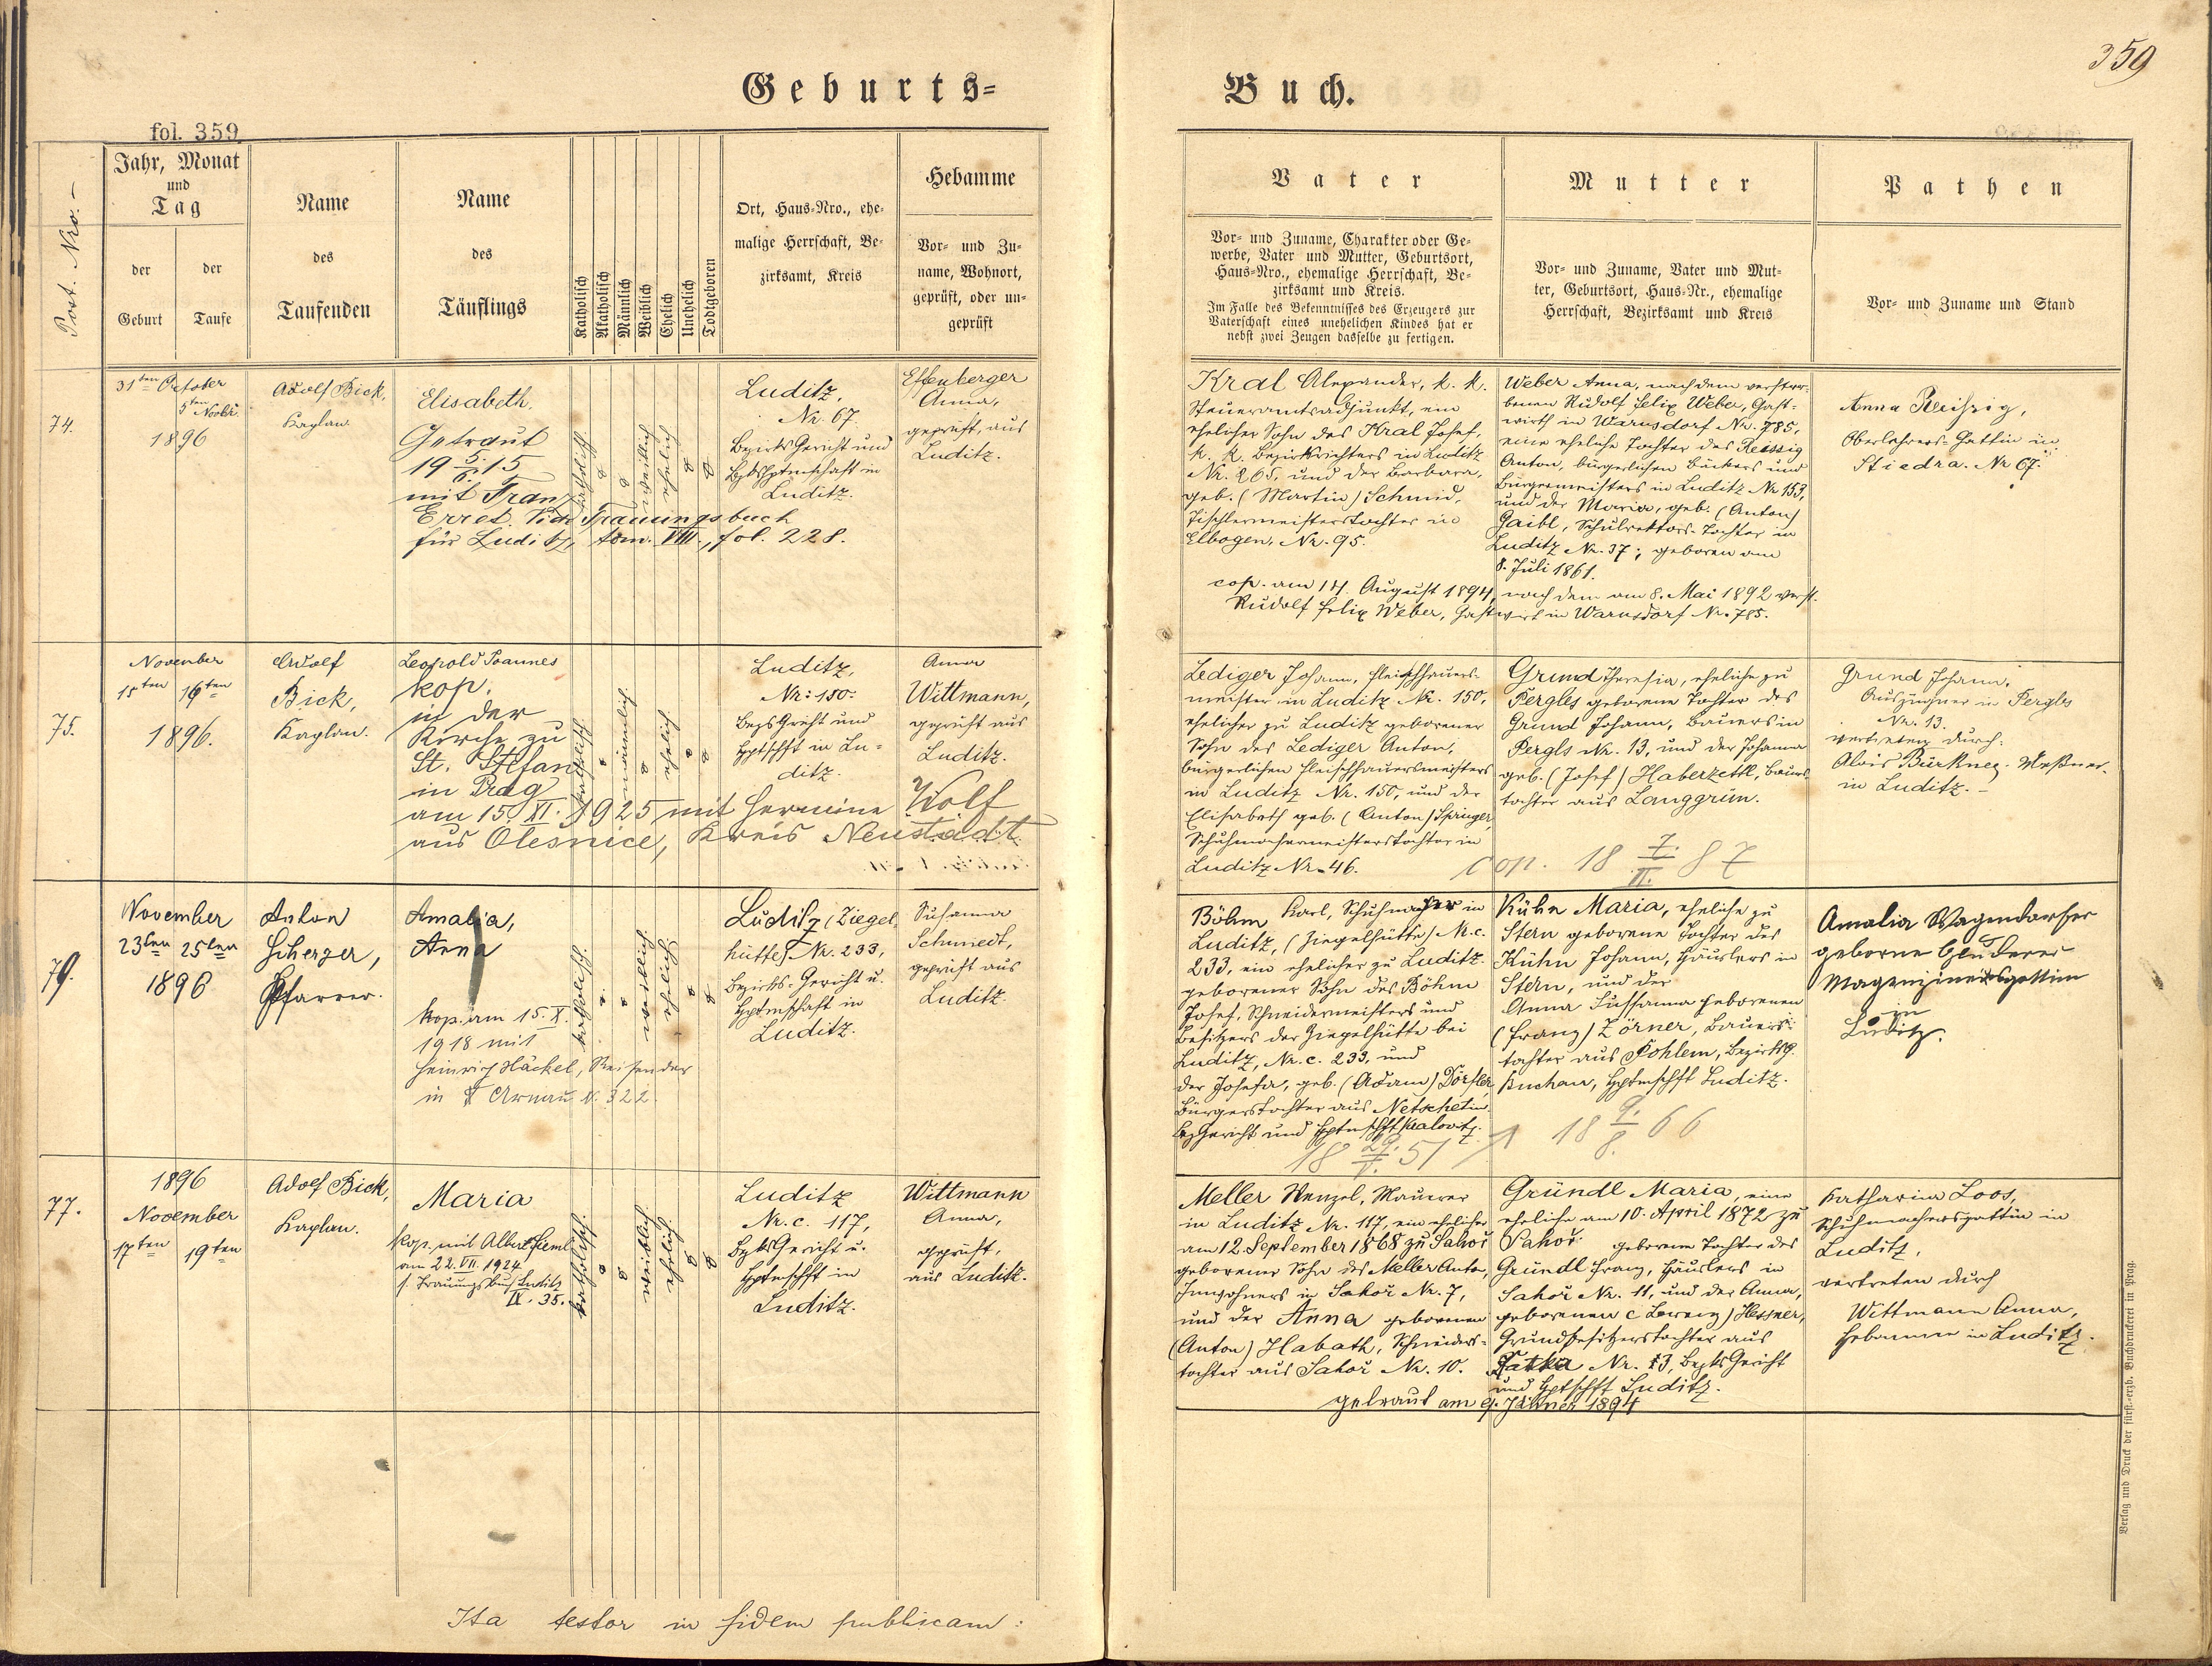 359
Geburts=
Buch.
fol. 359
Post. Nro. –
Jahr, Monat
und
Tag
der
Geburt
der
Taufe
Name
des
Taufenden
Name
des
Täuflings
Katholisch
Akatholisch
Männlich
Weiblich
Ehelich
Unehelich
Todtgeboren
Ort, Haus=Nro., ehe=
malige Herrschaft, Be=
zirksamt, Kreis
Hebamme
Vor= und Zu=
name, Wohnort,
geprüft, oder un=
geprüft
Vater
Vor= und Zuname, Charakter oder Ge=
werbe, Vater und Mutter, Geburtsort,
Haus=Nro., ehemalige Herrschaft, Be=
zirksamt und Kreis.
Im Falle des Bekenntnisses des Erzeugers zur
Vaterschaft eines unehelichen Kindes hat er
nebst zwei Zeugen dasselbe zu fertigen.
Mutter
Vor= und Zuname, Vater und Mut=
ter, Geburtsort, Haus=Nr., ehemalige
Herrschaft, Bezirksamt und Kreis
Pathen
Vor= und Zuname und Stand
74.
31ten October
5ten Novbr
1896
Adolf Bick,
Kaplan
Elisabeth.
Getraut
19 5./6. 15
mit Franz
Erret. Vide Trauungsbuch
für Luditz, tom. VIII., fol. 228.
katholisch
weiblich
ehelich
Luditz,
Nr. 67.
Bezirks Gericht und
Bzkshptmschaft in
Luditz.
Effenberger
Anna,
geprüft, aus
Luditz.
Kral Alexander, k. k.
Steueramtsadjunkt, ein
ehelicher Sohn des Kral Josef,
k. k. Bezirksrichters in Luditz
Nr. 265, und der Barbara,
geb. (Martin) Schmid,
Tischlermeisterstochter in
Elbogen, Nr. 95.
Weber Anna, nach dem verstor=
benen Rudolf Felix Weber, Gast=
wirth in Warnsdorf Nr. 785,
eine eheliche Tochter des Reissig
Anton, bürgerlichen Bäckers und
Bürgermeisters in Luditz Nr 153,
und der Maria, geb. (Anton)
Gaibl, Schulrektors-Tochter in
Luditz Nr. 37; geboren am
8. Juli 1861.
cop. am 14. August 1894, nach dem am 8. Mai 1892 verst.
Rudolf Felix Weber, Gastwirt in Warnsdorf Nr. 785.
Anna Reißig,
Oberlehrers-Gattin in
Stiedra. Nr 67.
75.
November
15ten 16ten
1896.
Adolf
Bick,
Kaplan.
Leopold Joannes
kop.
in der
Kirche zu
St. Stefan
in Prag
am 15. XI. 1925 mit Hermine Wolf
aus Olesnice, Kreis Neustadt
katholisch
männlich
ehelich
Luditz,
Nr: 150.
Bezgs Gericht und
Hptschft in Lu=
ditz.
Anna
Wittmann,
geprüft aus
Luditz.
Lediger Johann, Fleischhauer=
meister in Luditz Nr. 150,
ehelicher zu Luditz geborener
Sohn des Lediger Anton,
bürgerlichen Fleischhauersmeisters
in Luditz Nr. 150, und der
Elisabeth geb. (Anton) Springer,
Schuhmachermeisterstochter in
Luditz Nr. 46.
Grund Theresia, eheliche zu
Pergles geborene Tochter des
Grund Johann, Bauers in
Pergls Nr. 13, und der Johanna
geb. (Josef) Haberzettl, Bauers
tochter aus Langgrün.
cop. 18 7./II. 87
Grund Johann,
Auszügner in Pergles
Nr. 13.
vertreten durch:
Alois Bürkner - Meßner
in Luditz. -
76.
November
23ten 25ten
1896
Anton
Scherzer,
Pfarrer.
Amalia,
Anna
kop. am 15. X.
1918 mit
Heinrich Häckel, Reisender
in Arnau N. 322.
katholisch.
weiblich.
ehelich
Luditz (Ziegel
hütte) Nr. 233,
Bezirks-Gericht u.
Hptmschaft in
Luditz.
Susanna
Schmiedt,
geprüft aus
Luditz.
Böhm Karl, Schuhmacher in
Luditz, (Ziegelhütte) N.c.
233, ein ehelicher zu Luditz
geborener Sohn des Böhm
Josef, Schneidermeisters und
Besitzers der Ziegelhütte bei
Luditz, Nr. c. 233, und
der Josefa, geb. (Adam) Dörfler,
Bürgerstochter aus Netschetin
Bez Gericht und Hptmschft Kralowitz.
18 29./V. 51
Kühn Maria, eheliche zu
Stern geborene Tochter des
Kühn Johann, Häuslers in
Stern, und der
Anna Sussanna geborenen
(Franz) Zörner, Bauers=
tochter aus Pohlem, Bezirksg.
Buchau, Hptmschft Luditz.
18 9./8. 66
Amalia Wagendorfer
geborne
Magazineursgattin
in
Luditz.
77.
1896
November
17ten 19ten
Adolf Bick,
Kaplan.
Maria
kop. mit Albert Heml
am 22. VII. 1924
s. Trauungsbuch Luditz
IX. 35.
katholisch.
weiblich
ehelich
Luditz
Nr. c. 117,
Bzks Gericht u.
Hptmschft in
Luditz.
Wittmann
Anna,
geprüft,
aus Luditz.
Meller Wenzel, Maurer
in Luditz Nr. 117, ein ehelicher
am 12. September 1868 zu Sahoř
geborener Sohn des Meller Anton,
Inwohners in Sahoř Nr. 7,
und der Anna geborenen
(Anton) Habath, Schneiders=
tochter aus Sahoř Nr. 10.
Gründl Maria, eine
eheliche am 10. April 1872 zu
Sahoř geborene Tochter des
Gründl Franz, Häuslers in
Sahoř Nr. 11, und der Anna,
geborenen (Lorenz) Hessner,
Grundbesitzerstochter aus
Ratka Nr. 13, Bezks Gericht
und Hptschft Luditz.
getraut am 9. Jänner 1894
Katharina Loos,
Schuhmachersgattin in
Luditz,
vertreten durch
Wittmann Anna,
Hebamme in Luditz.
Ita testor in fidem publicam:
Verlag und Druck der fürst.=erzb. Buchdruckerei in Prag.